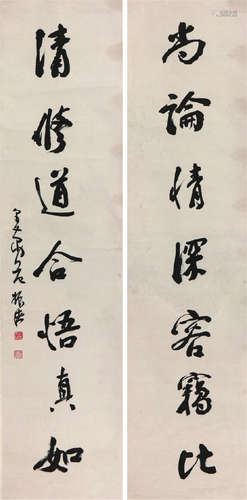 尚論情深容竊比
清修道合悟真如